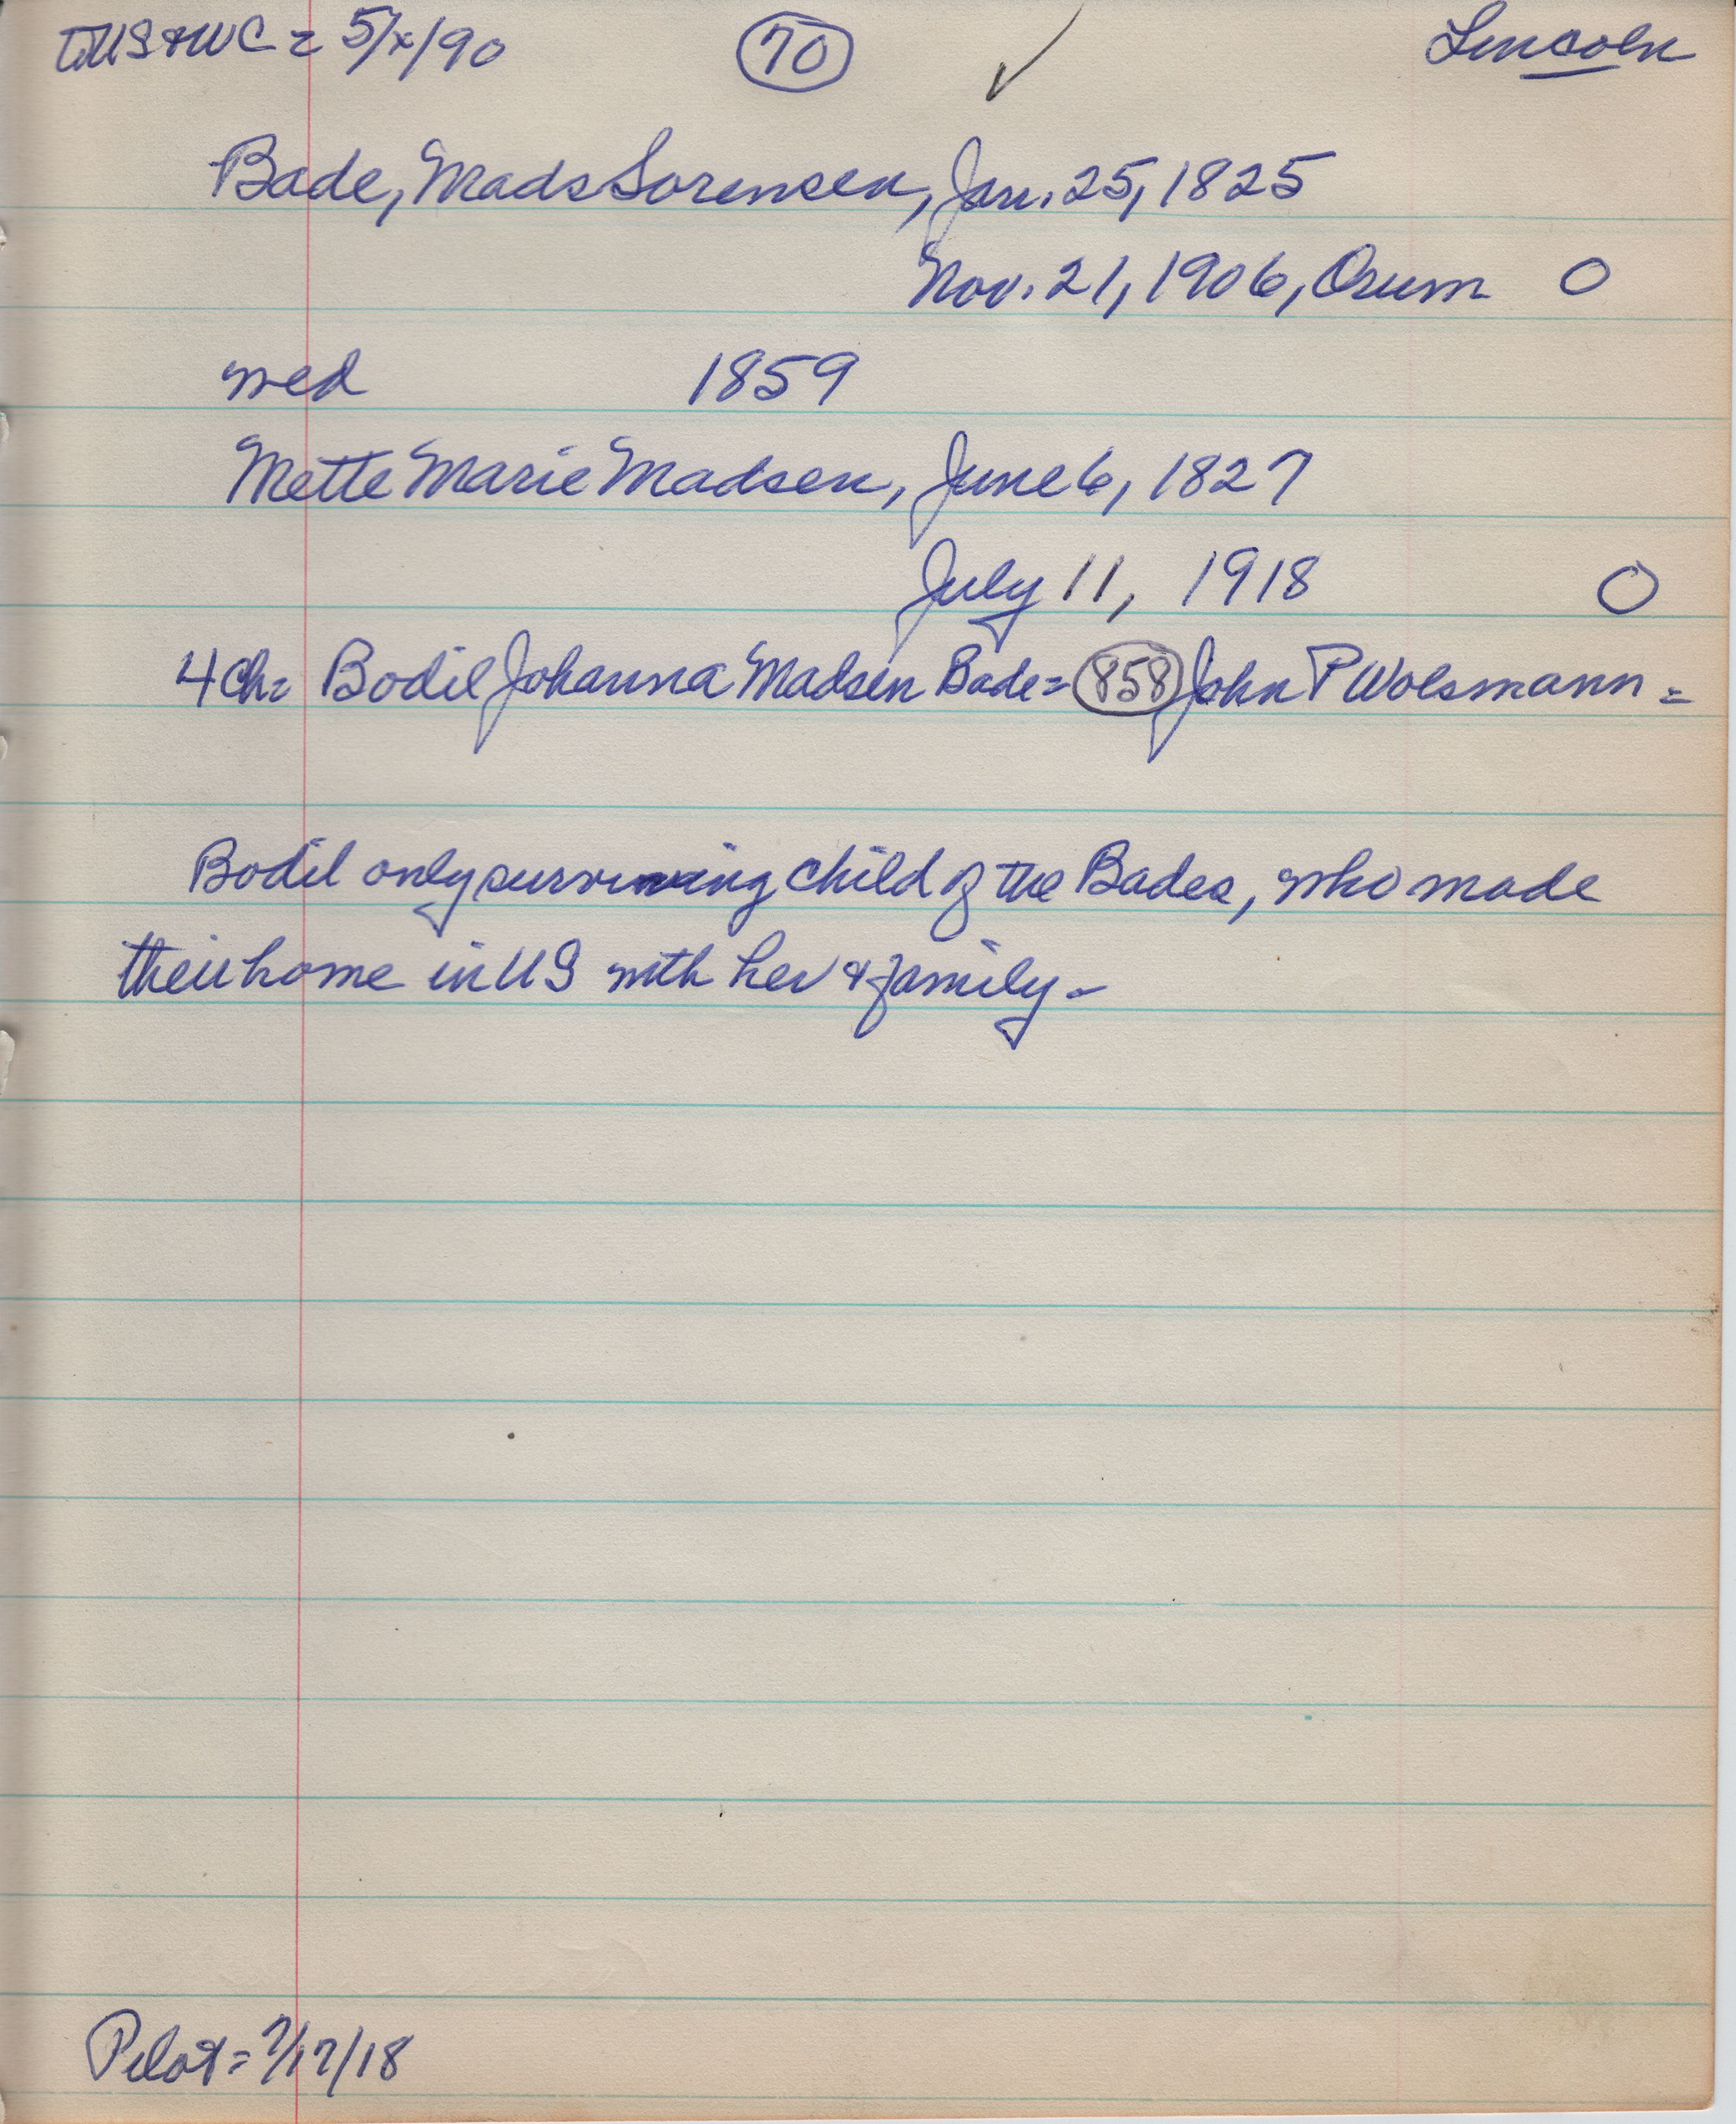 to US & WC = 5/x/90 70 ✓ Lincoln
Bade, Mads Sorensen, Jan. 25, 1825
Nov. 21, 1906, Orum O
wed 1859
Mette Marie Madsen, June 6, 1827
July 11, 1918 O
4 ch = Bodil Johanna Madsen Bade = 858 John P Wolsmann =
Bodil only surviving child of the Bades, who made
their home in US with her & family -
Pilot = 7/17/18